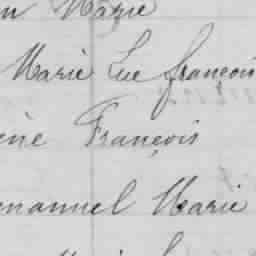 n Marie
Marie Luc françois
ène François
manuel Marie